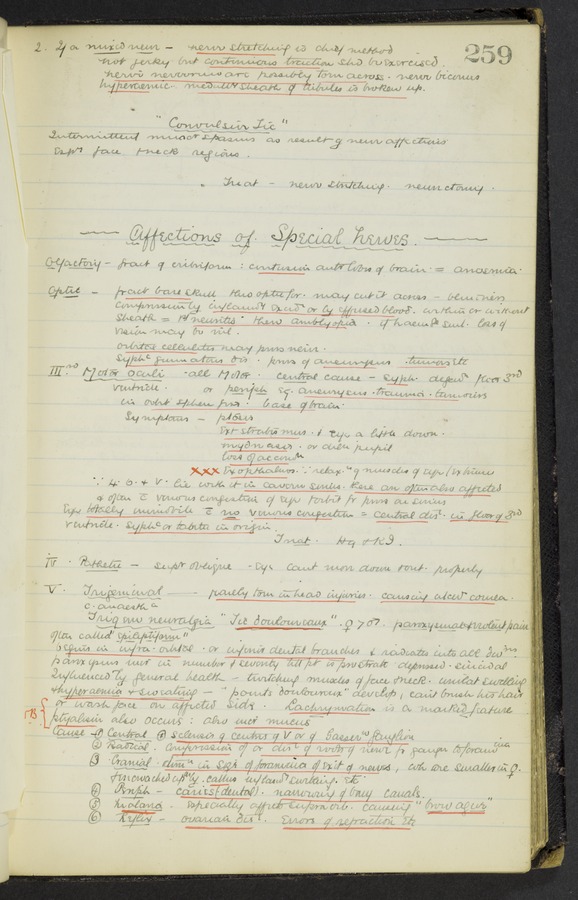 259
2. If a mixed nerve - nerve stretching is chief method
not jerky but continuous traction shd be exercised.
nervi nervorum are possibly torn across. nerve becomes
hyperaemic. medullary sheath of tubules is broken up.
"Convulsive Tic"
Intermittent muscr spasms as result of nerve affections
Esply face & neck regions.
Treat - nerve stretching. neurectomy.
Affections of Special Nerves.
Olfactory - fract of cribriform: contusion antr lobes of brain = anosmia.
Optic - fract base skull thro optic for. may cut it across - blindness
Compression by inflamy exudn or by effused blood. within or without
Sheath = neuritis then amblyopia. if haemge sml. loss of
vision may be nil.
orbital cellulitis may press nerve.
Syphc gummatous dis. press of aneurysms. tumours etc
IIIrd Motor oculi - all motor. central cause - syph. depost floor 3rd
ventricle. or periph eg. aneurysms. trauma. tumours
in orbit sphen fiss. base of brain.
Symptoms - ptosis
Ext strabismus. & eye a little down.
mydriasis. or dilatn pupil
loss of accomn
xxx Exophthalmos ∵ relaxn of muscles of eye.
∵ 4. 6. & V. lie with it in cavern sinus. these are often also affected
& often c̄ venous congestion of eye & orbit fr press on sinus
Eye totally immobile c̄ no venous congestion = central dis. in floor of 3rd
ventricle. Syphc or tabetic in origin.
Treat. Hg & KI.
IV. Pathetic - supr oblique - eye cant move down & out. properly
V. Trigeminal - rarely torn in head injuries. causing ulcerd cornea.
c. anaesthа
Trigemi neuralgia "Tic douloureux". ♀ 7 ♂. paroxysmal & violent pain
often called "epileptiform"
begins in infra-orbital - or infr dental branches & radiates into all divns
paroxysms incr in number & severity till pt is prostrate depressed. suicidal
Influenced by general health - twitching muscles of face & neck. unilat swelling
& hyperaemia & sweating - "points douloureux" develop, cant brush his hair
or wash face on affected side. Lachrymation is a marked feature
NB ptyalism also occurs: also incr mucus
Cause - ① Central ⓐ sclerosis of centres of V or of Gasserн Ganglion
② Radical. Compression of or dis. of roots of nerve fr gangn to brain
③ Cranial - dimn in size of foramina of exit of nerves, wh are smaller in ♀.
④ Periph - caries (dental). narrowing of bony canals.
⑤ Malaria. especially affects supraorb. causing "brow ague"
⑥ Reflex - ovarian dis. Errors of refraction etc